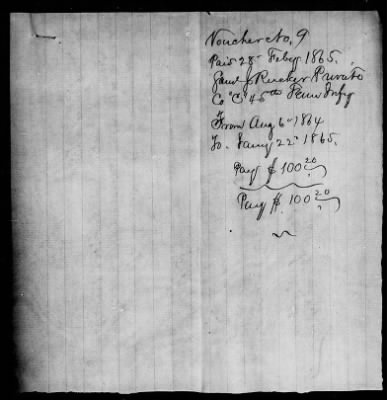 Voucher No, 9
Paid 28" Feby 1865.
Saml J Rucker Private
Co "C" 45th Penn Infy
From Aug 6" 1864
To Jany 22" 1865.
Pay $ 100 20
Pay $ 100 20